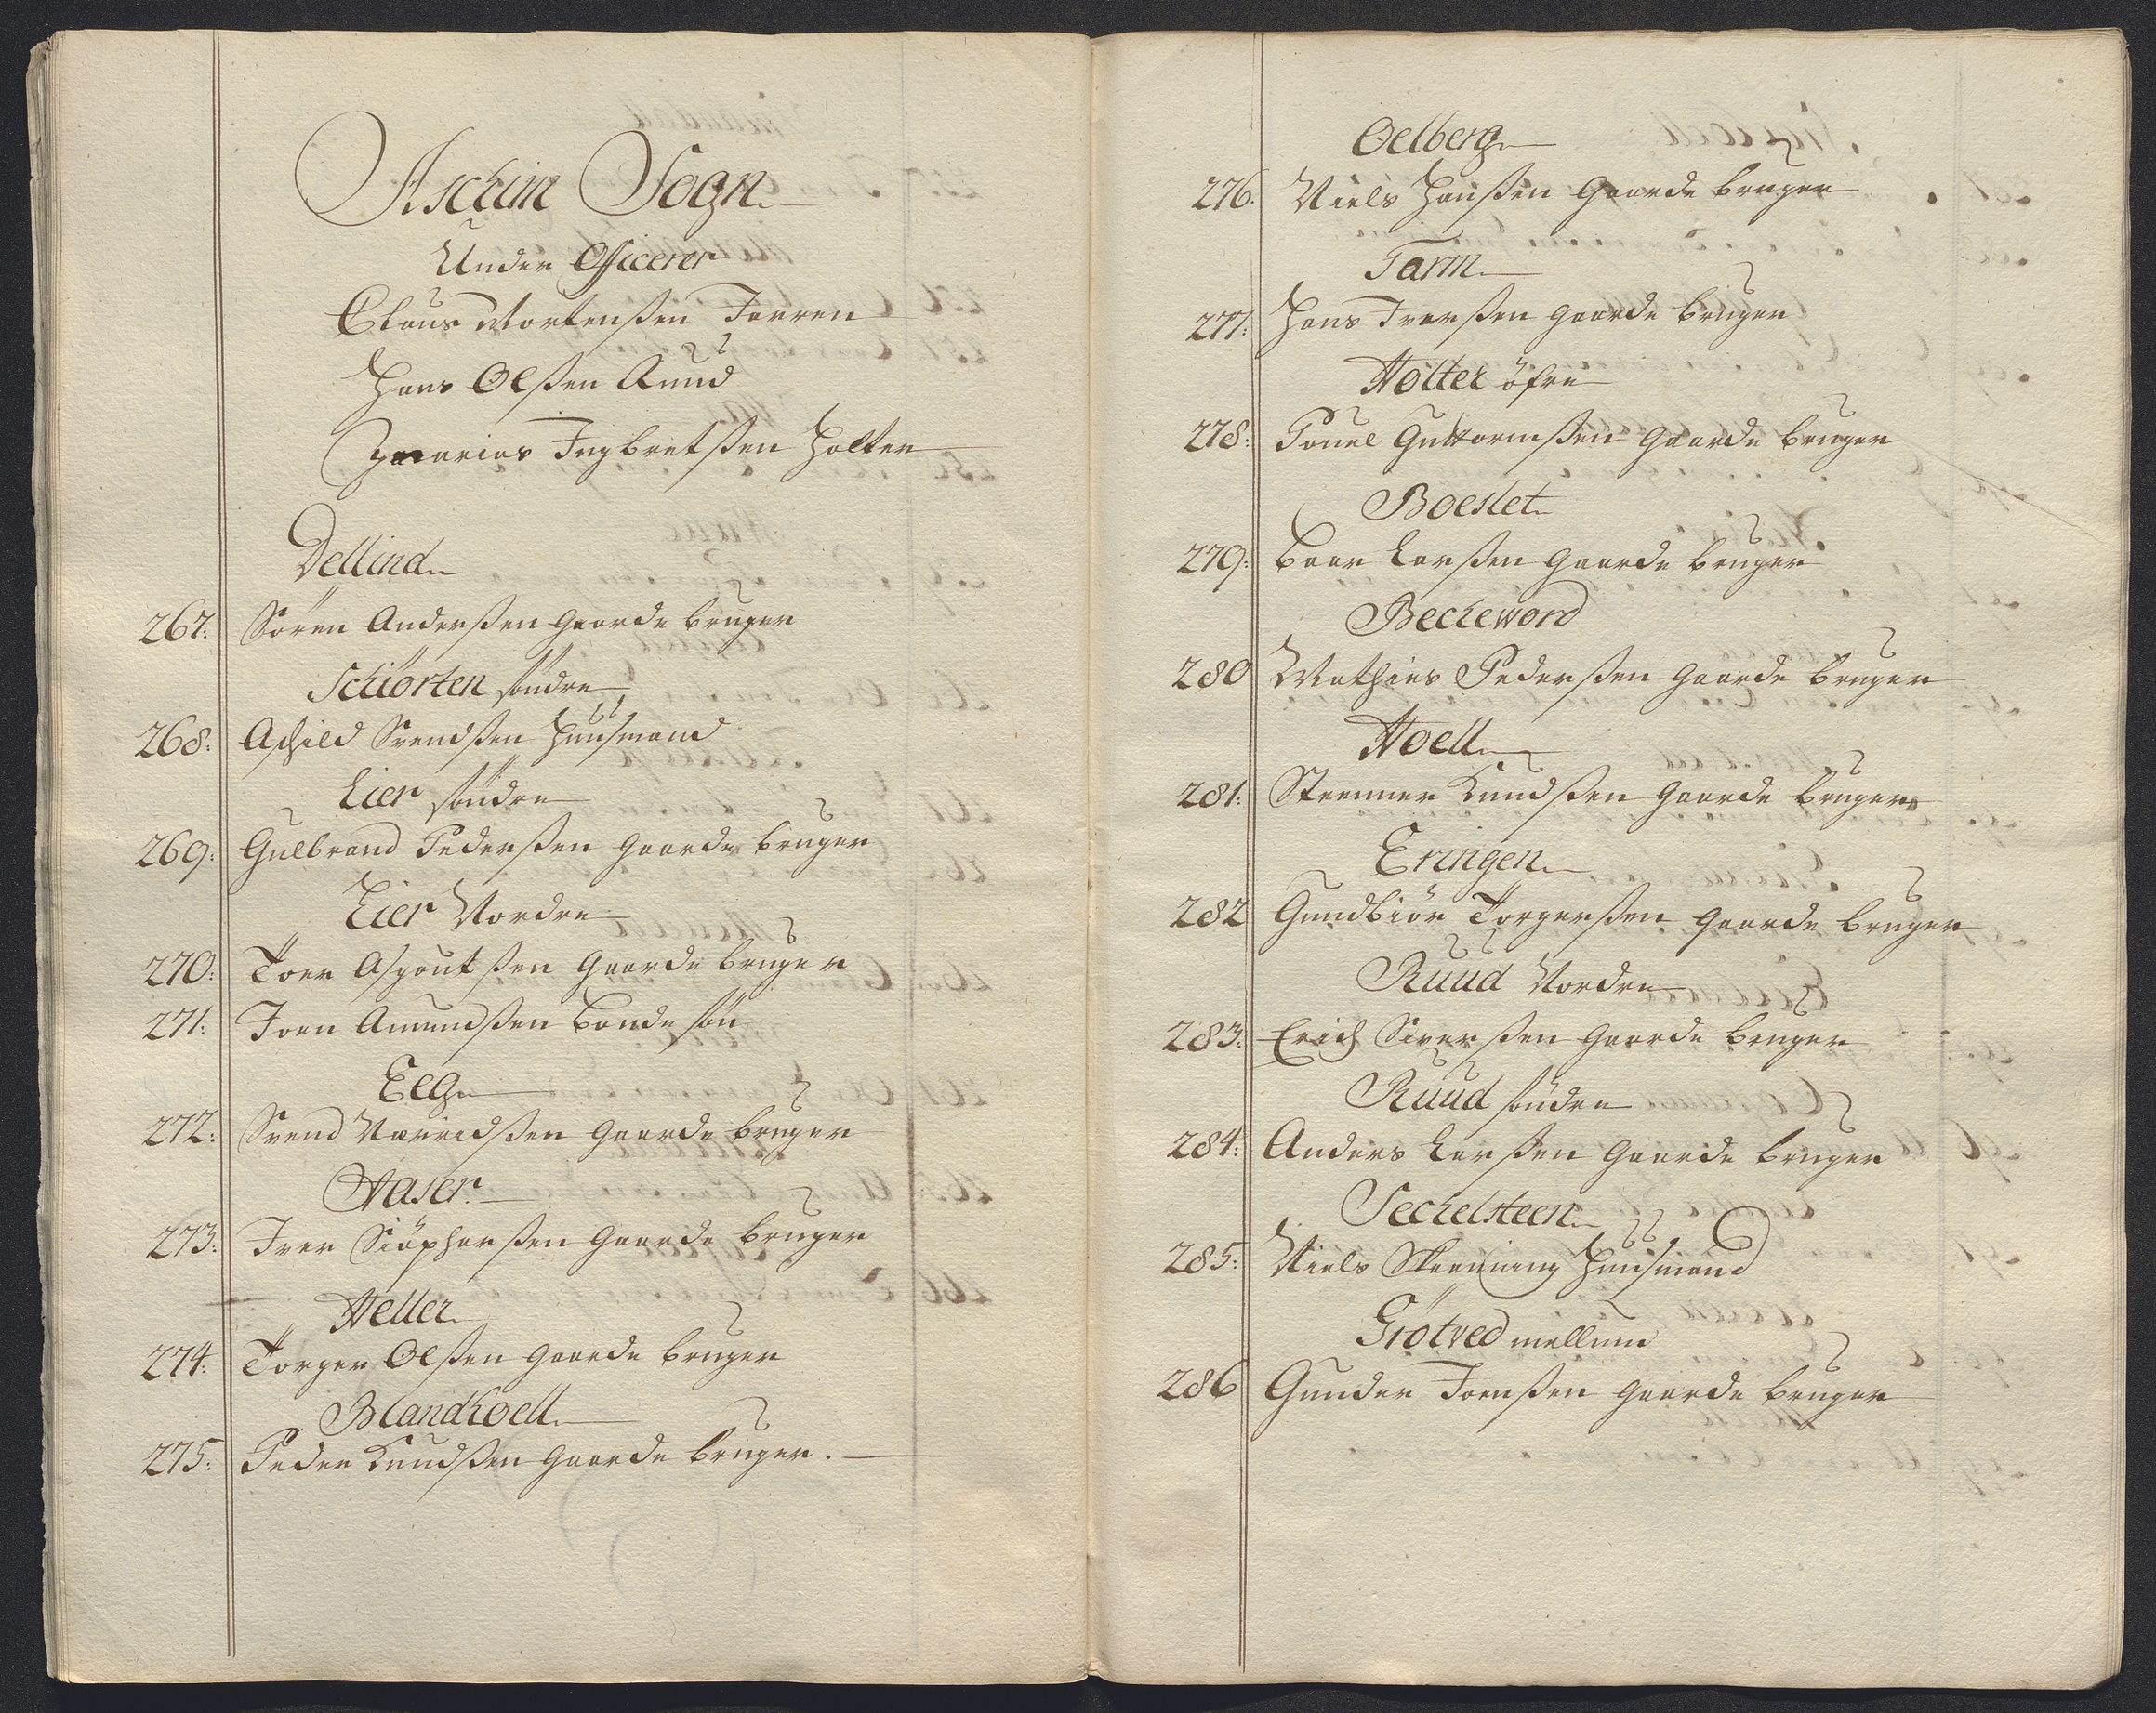 Aschim Sogn
Under Officerer
Claus Mortensen Torren
Hans Olsen Ruud
Zacarias Ingbretsen Holter
Dellind
267: Sören Andersen Gaarde bruger
Schiörten söndre
268: Aschild Svendsen Huusmand
Lier söndre
269: Gulbrand Pedersen Gaarde bruger
Lier Nordre
270: Toer Asgoutsen Gaarde bruger
271: Joen Amundsen Bonde sön
Elg
272: Svend Norridsen Gaarde bruger
Haser
273: Iver Siöphersen Gaarde bruger
Heller
274: Torger Olsen Gaarde bruger
Blandkoell
275: Peder Knudsen Gaarde bruger.
Oelberg
276. Niels Hansen Gaarde bruger
Tarm
277: Hans Iversen Gaarde bruger
Holter öfre
278: Pouel Guttormsen Gaarde bruger
Boeslet
279: Boer Larsen Gaarde bruger
Beckeword
280 Mathies Pedersen Gaarde bruger
Hoell
281: Stenner Knudsen Gaarde bruger
Eringen
282 Gundbiör Torgersen Gaarde bruger
Ruud Nordre
283: Erich Siversen Gaarde bruger
Ruud söndre
284: Anders Larsen Gaarde bruger
Seckelsteen
285: Niels Huusmand
Giötved mellum
286 Gunder Joensen Gaarde bruger